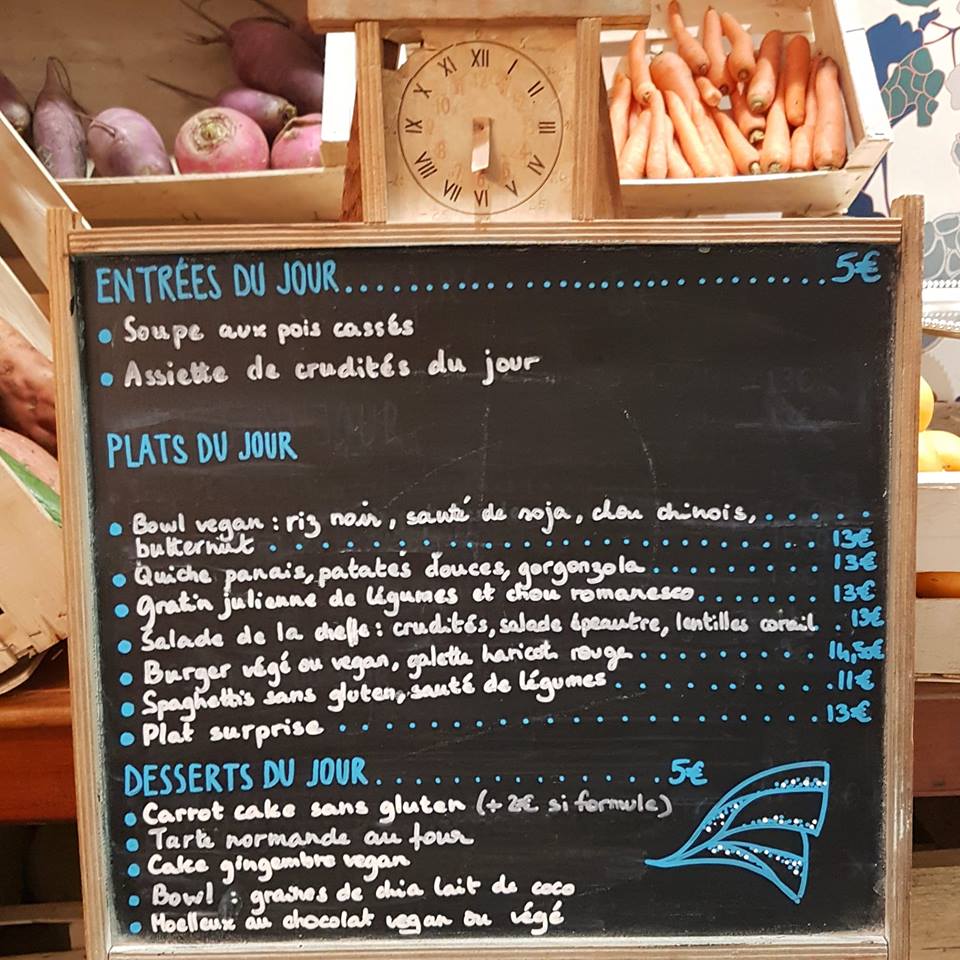 XII
I
II
III
IV
V
VI
VII
VIII
IX
X
XI
ENTRÉES DU JOUR.......................................5€
• Soupe aux pois cassés
• Assiette de crudités du jour
PLATS DU JOUR
• Bowl vegan : riz noir, sauté de soja, chou chinois,......
butternut ............................ 13€
• Quiche panais, patates douces, gorgonzola......... 13€
• Gratin julienne de légumes et chou romanesco....... 13€
• Salade de la cheffe : crudités, salade épeautre, lentilles corail . 13€
• Burger végé ou vegan, galette haricot rouge.......... 14,50€
• Spaghettis sans gluten, sauté de légumes........... 11€
• Plat surprise ......................... 13€
DESSERTS DU JOUR............... 5€
• Carrot cake sans gluten (+2€ si formule)
• Tarte normande au four
• Cake gingembre vegan
• Bowl : graines de chia lait de coco
• Moelleux au chocolat vegan ou végé